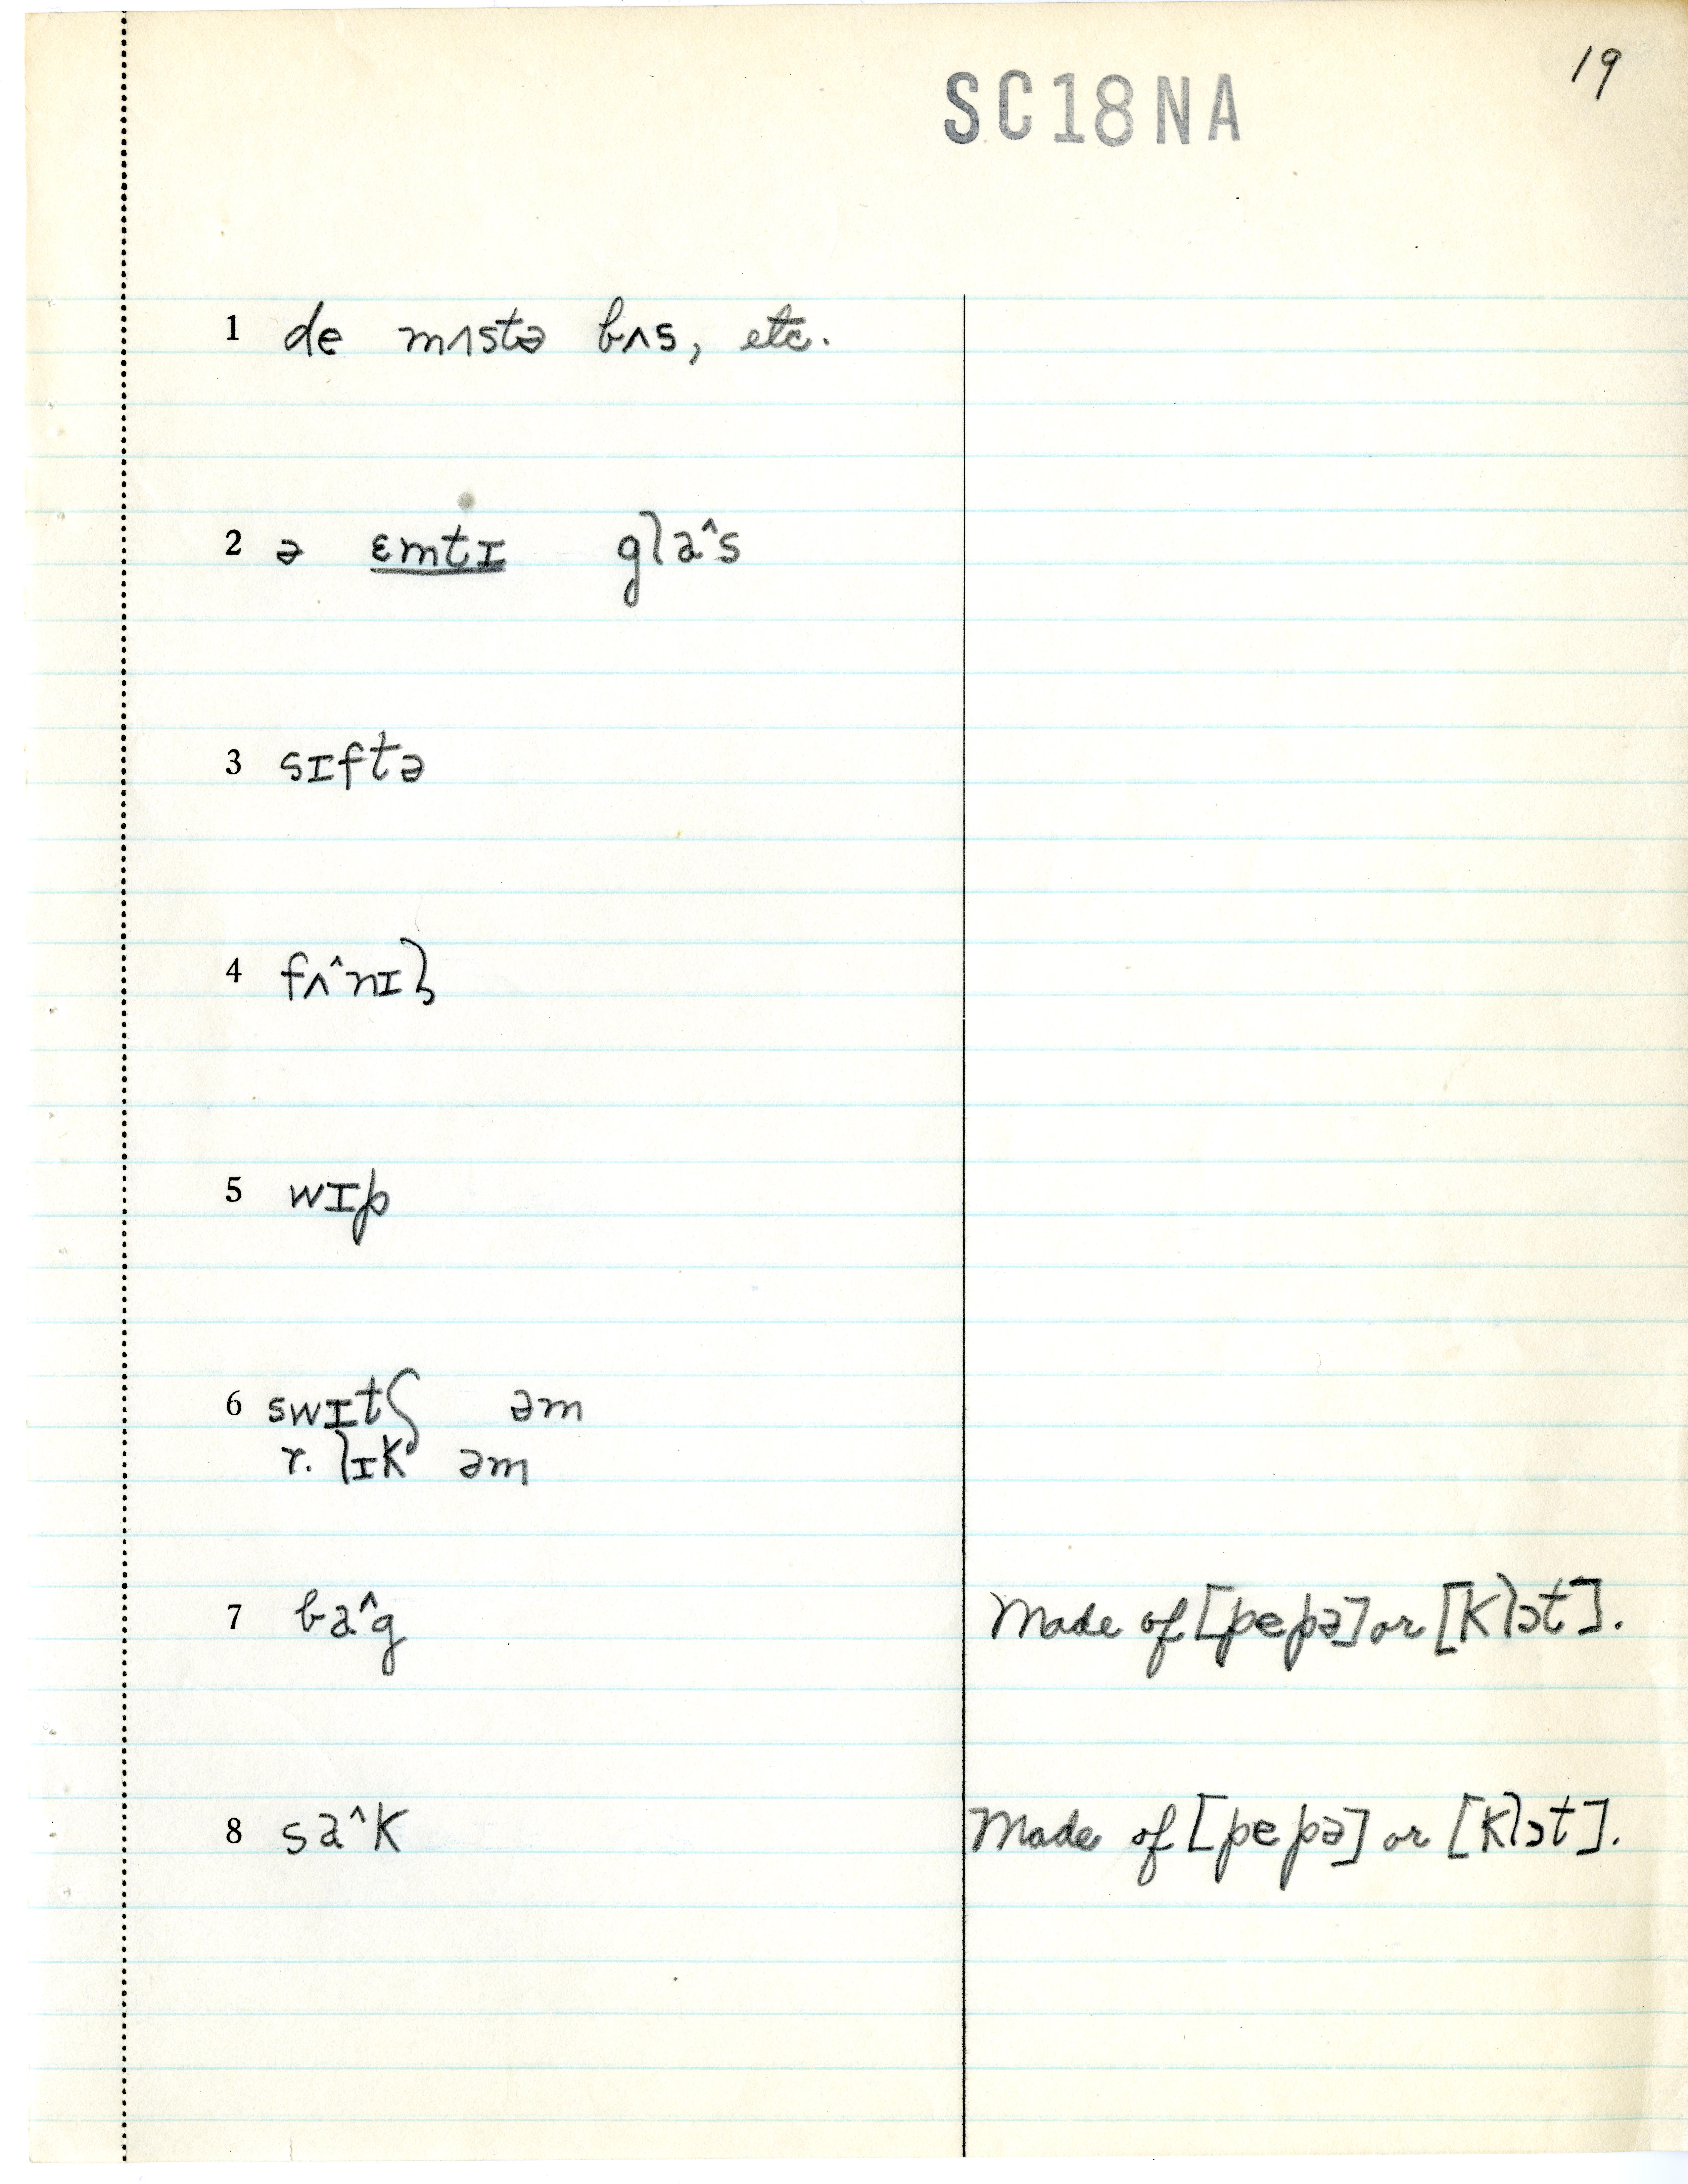 19
SC18NA
1 de mʌstə bʌs, etc.
2 ə ɛmtɪ glaˆs
3 sɪftə
4 fʌˆnɪɫ
5 wɪp
6 swɪtʃ əm
r. lɪk əm
7 baˆg Made of [pepə] or [klɔt].
8 saˆk Made of [pepə] or [klɔt].